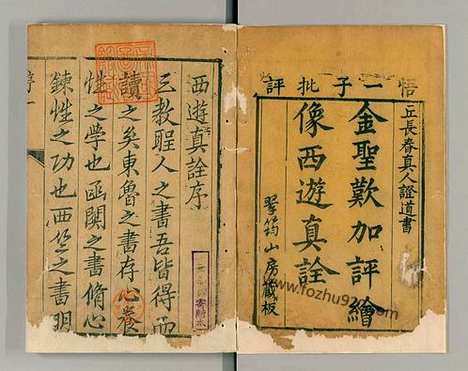 悟一子批評
丘長春真人證道書
金聖歎加評繪
像西遊真詮
翠筠山房藏板
西遊真詮序
三教聖人之書吾皆得而
讀之矣東魯之書存心養
性之學也函關之書脩心
鍊性之功也西竺之書明
序一
www.fozhu9